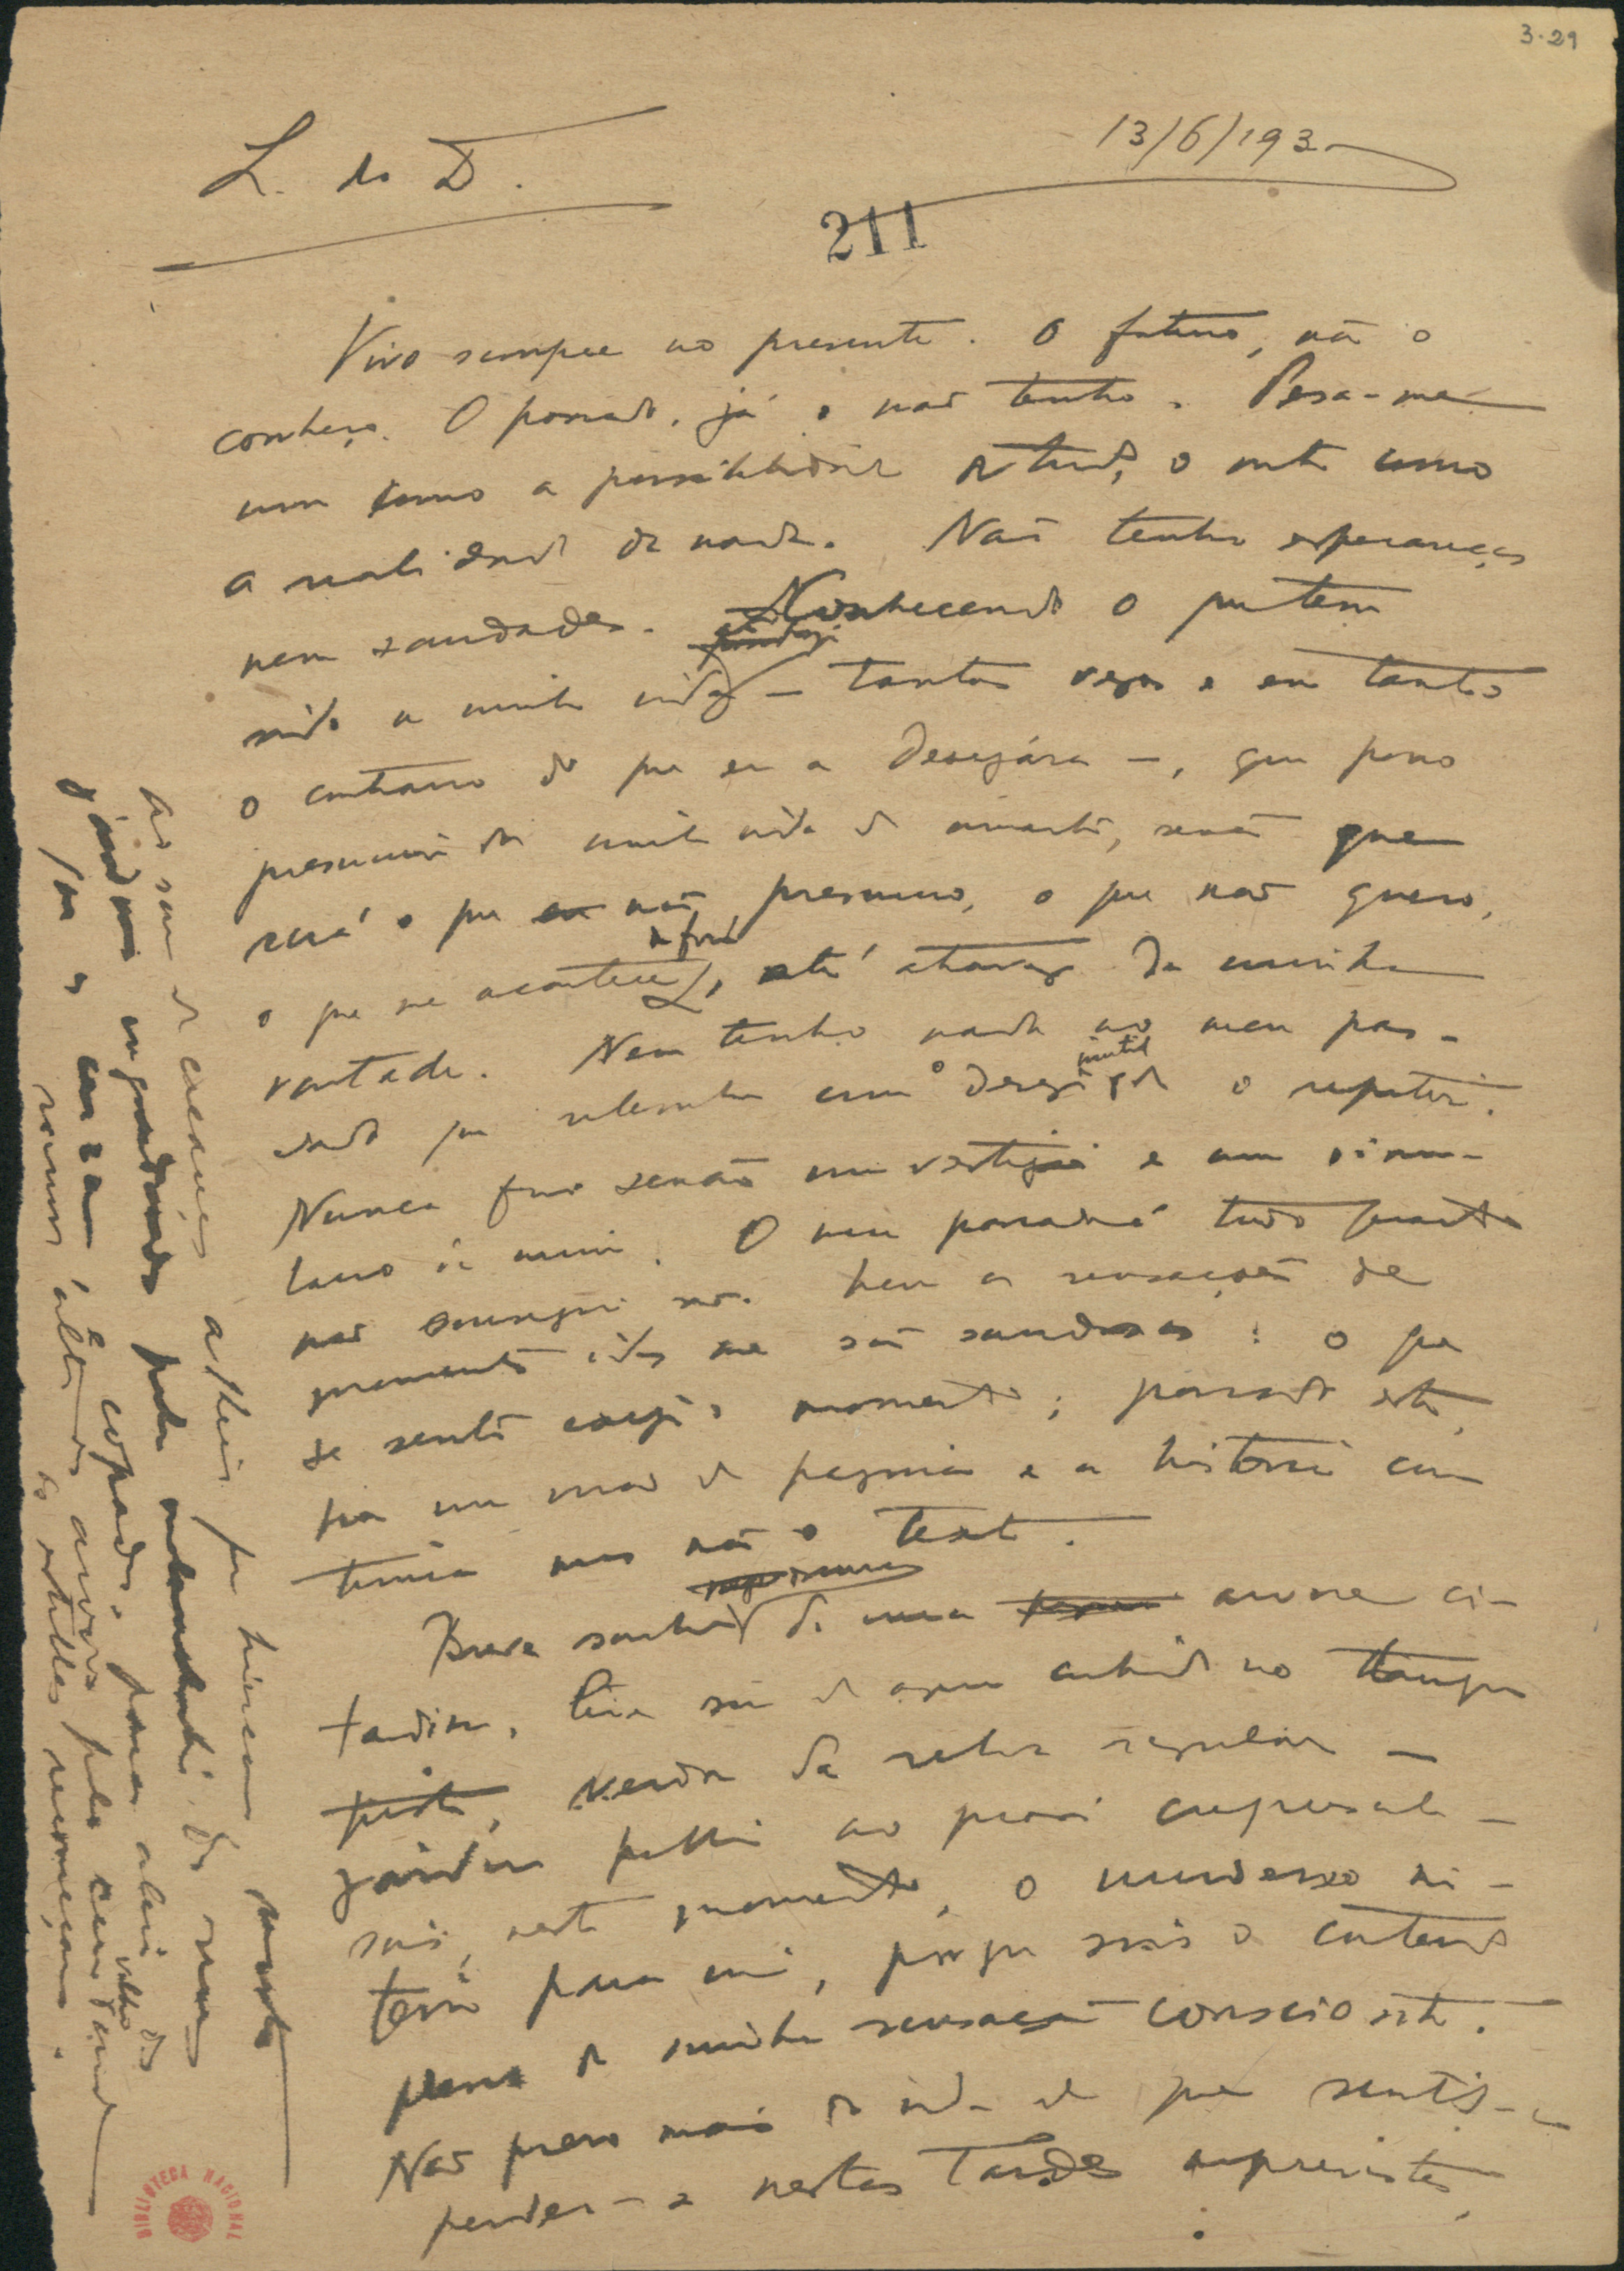 3-29
L. do D.
13/6/1930
211
Vivo sempre no presente. O futuro, não o
conheço. O passado, já o não tenho. Pesa-me
um como a possibilidade de tudo, o outro como
a realidade de nada. Não tenho esperanças
nem saudades. Conhecendo o que tem
sido a minha vida até hoje — tantas vezes e em tanto
o contrario do que eu a desejára —, que posso
presumir da minha vida de amanhã, senão que
será o que não presumo, o que não quero,
o que me acontece de fóra, até atravez da minha
vontade. Nem tenho nada no meu pas-
sado que relembre com o desejo inutil de o repetir.
Nunca fui senão um vestigio e um simu-
lacro de mim. O meu passado é tudo quanto
não consegui ser. Nem as sensações de
momentos idos me são saudosas: o que
se sente exige o momento; passado este,
ha um virar de pagina e a historia con-
tinúa mas não o texto.
Breve sombra escura de uma arvore ci-
tadina, leve som de agua cahindo no tanque
triste, verde da relva regular —
jardim publico ao quasi crepusculo —
sois, neste momento, o universo in-
teiro para mim, porque sois o conteudo
pleno da minha sensação consciente.
Não quero mais da vida do que sentil-a
perder-se nestas tardes imprevistas,
ao som de creanças alheias que brincam nestes
jardins engradados pela melancholia das ruas
que os cercam, e copados, para além dos
ramos altos das arvores, pelo céu velho onde
as estrellas recomeçam.
BIBLIOTECA NACIONAL